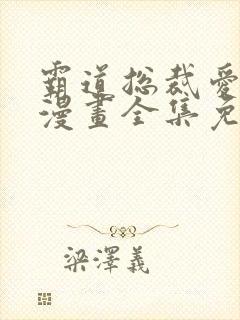 霸道总裁愛
漫畫全集免
梁澤義